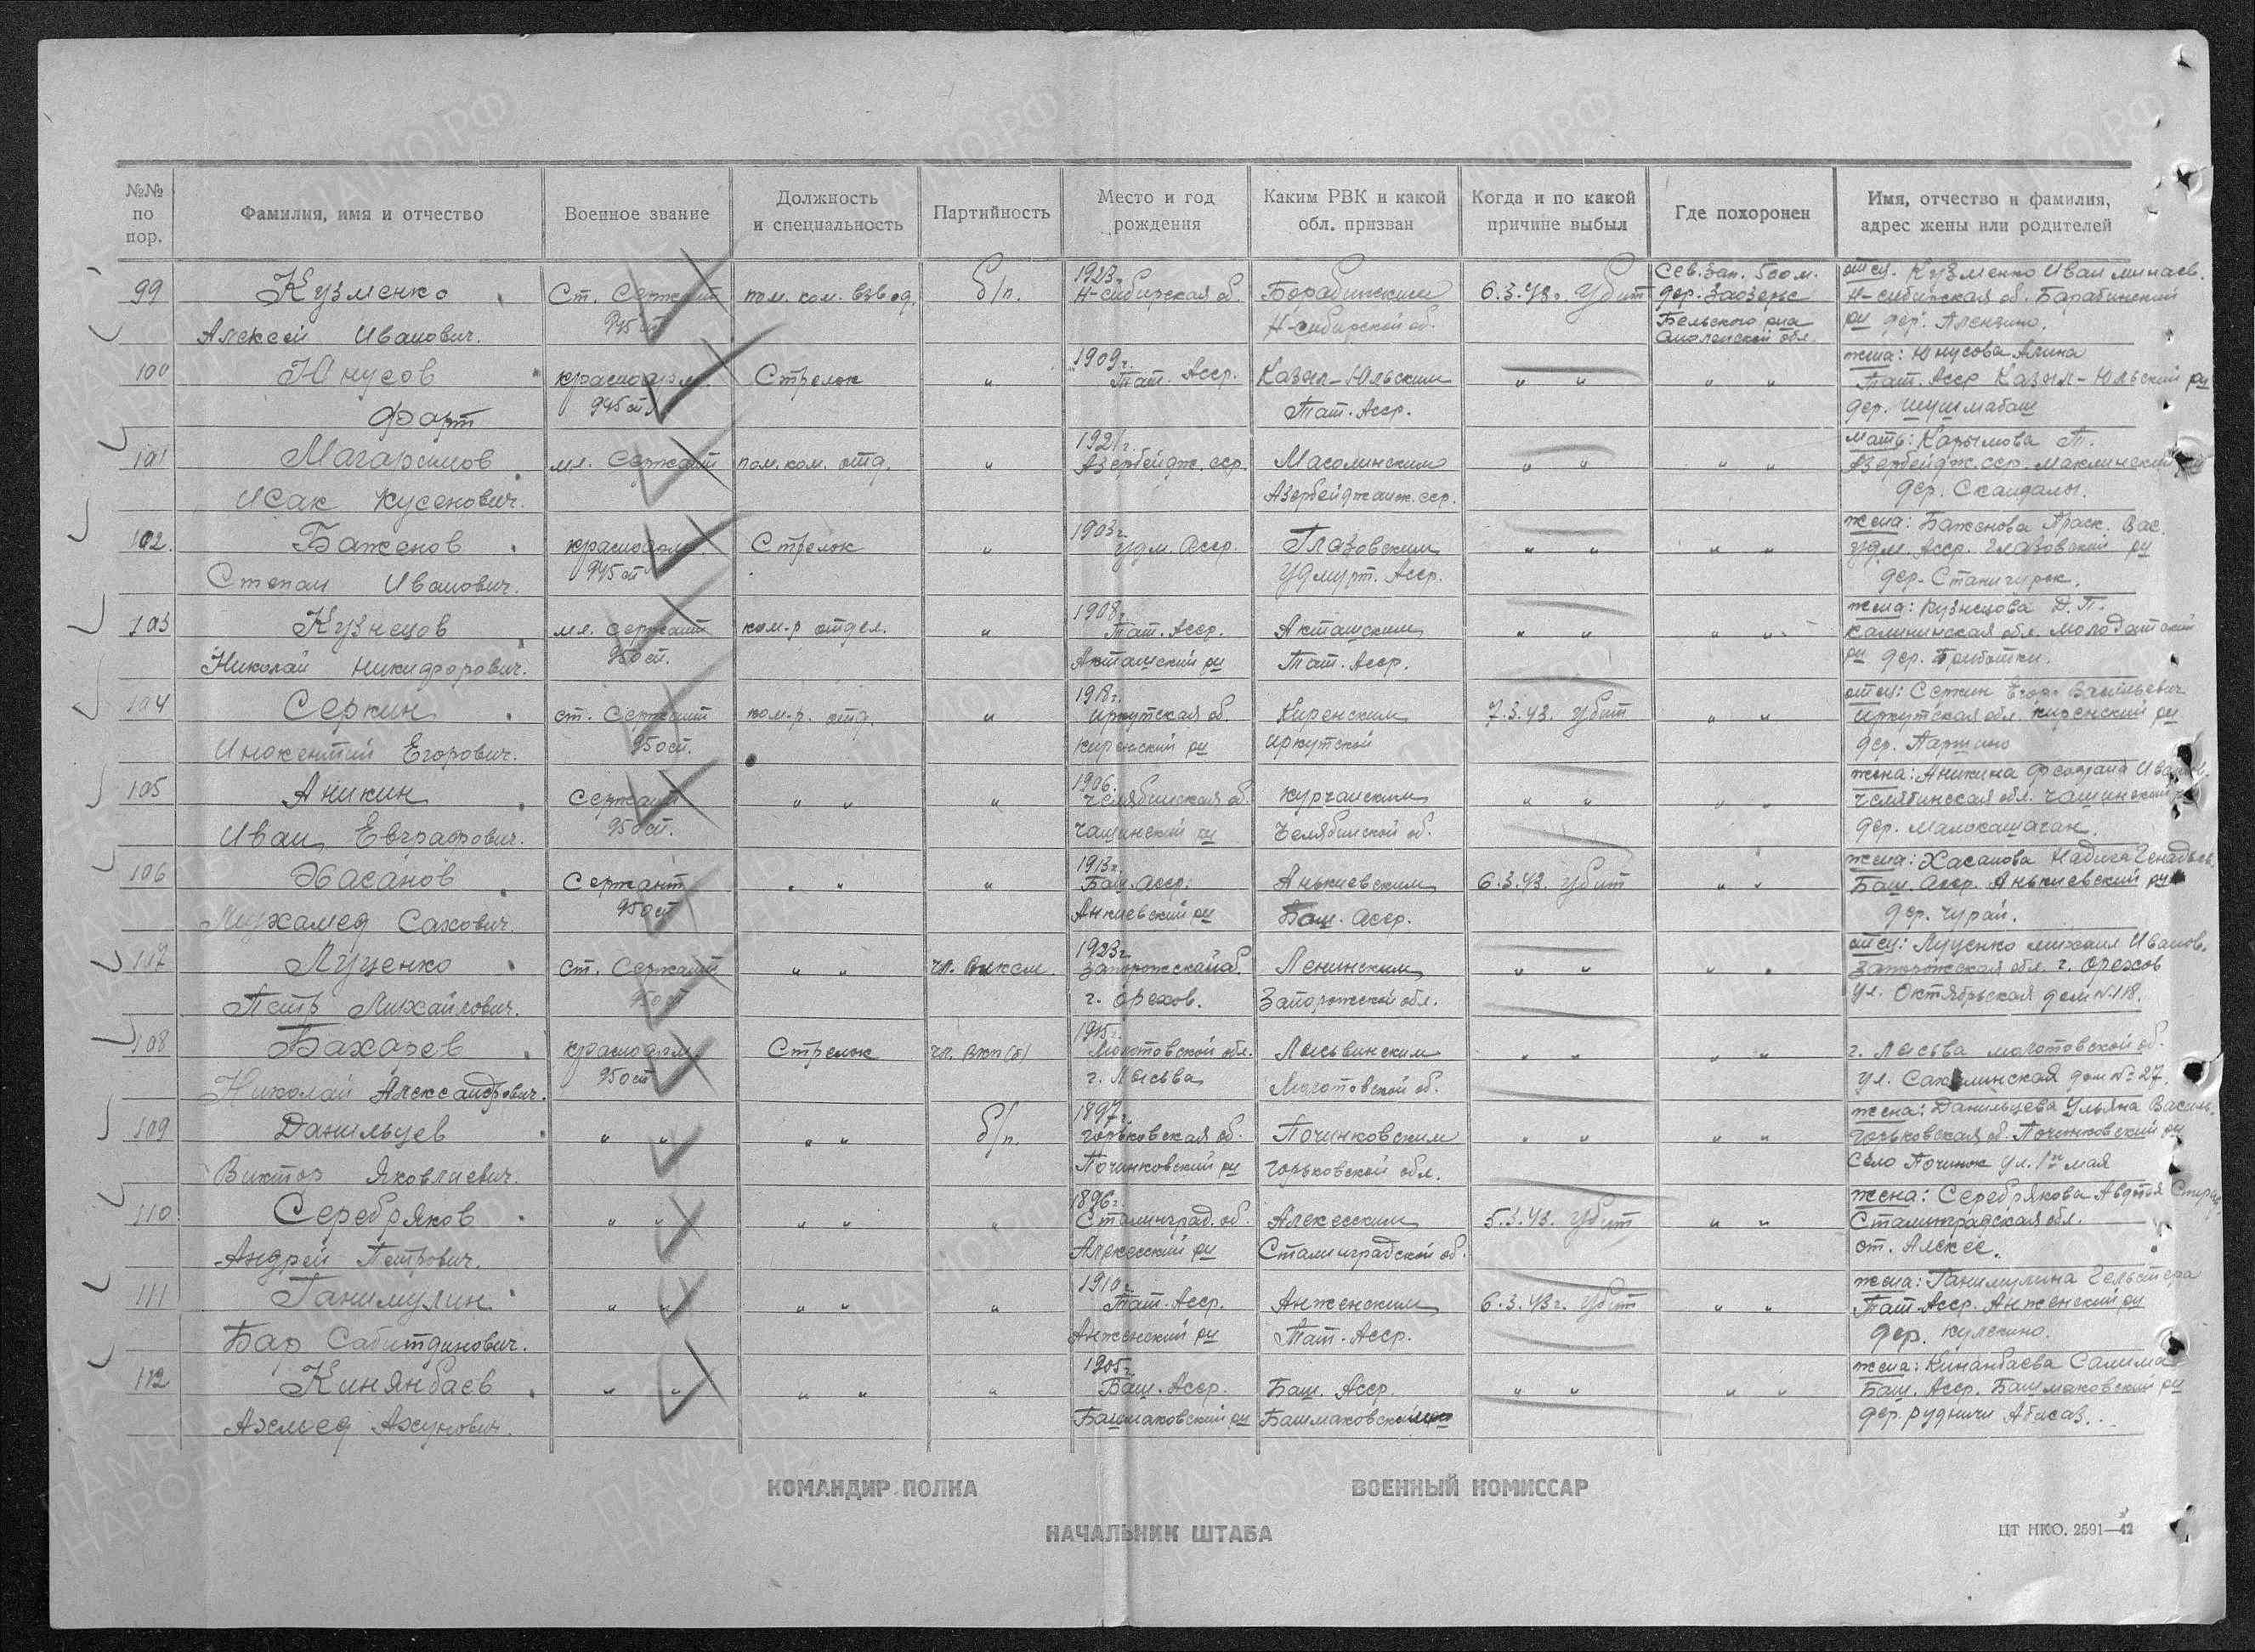 №№ по пор.
Фамилия, имя и отчество
Военное звание
Должность и специальность
Партийность
Место и год рождения
Каким РВК и какой обл. призван
Когда и по какой причине выбыл
Где похоронен
Имя, отчество и фамилия, адрес жены или родителей
99 Кузменко Ст. Сержант пом. ком. взвод. б/п. 1923г. Н-сибирская об. Борабинским 6.3.43г. Убит Сев. Зап. 500 м. дер. Заозерье отец. Кузменко Иван Минаев. Н-сибирская об. Барабинский
Алексей Иванович. 945 сп Н-сибирской об. Бельского р-на Смоленской обл. рн дер.
100 Юнусов красноарм. Стрелок " 1909г. Тат. Асср. Казыл-Юльским " " " " жена: Юнусова Тат. Асср Казыл-Юльский рн
Фарт 945 сп Тат. Асср. дер. Шушмабаш
101 Магарамов мл. Сержант пом. ком. отд. " 1921г. Азербейдж. сср. " " " " мать: Карымова Т. Азербейдж. сср.
Исак Кусенович. Азербейджанск. сср. дер. Скандалы.
102. Баженов красноарм. Стрелок " 1903г. Удм. Асср. Глазовским " " " " жена: Баженова Праск. Вас. Удм. Асср. Глазовский рн
Степан Иванович. 945 сп Удмурт. Асср. дер.
103 Кузнецов мл. сержант ком-р отдел. " 1908 Тат. Асср. Акташским " " " " жена: Кузнецова Д. П. Калининская обл.
Николай Никифорович. 950 сп. Акташский рн Тат. Асср. рн дер.
104 Серкин ст. Сержант ком-р. отд. " 1918г. Иркутская об. Киренским 7.3.43. Убит " " отец: Серкин Егор Иркутская обл. Киренский рн
Инокентий Егорович. 950 сп. Киренский рн Иркутской дер. Паршино
105 Аникин Сержант " " " 1906. Челябинская об. Курганским " " " " жена: Аникина Челябинская обл. Чашинский
Иван Евграфович. 950 сп. Чашинский рн Челябинской об. дер.
106 Хасанов Сержант " " " 1913г. Баш. Асср. Анькиевским 6.3.43. Убит " " жена: Хасанова Баш. Асср. Анькиевский рн
Мухамед Сахович. 950 сп Анкиевский рн Баш. Асср. дер. Чурай.
107 Луценко ст. Сержант " " чл. Влксм. 1923г. Запорожской об. Ленинским " " " " отец: Луценко Михаил Иванов. Запорожская обл. г. Орехов
Петр Михайлович. 950 сп г. Орехов. Запорожской обл. ул. Октябрьская дом № 118.
108 Бахарев красноарм. Стрелок чл. Вкп(б) 1915г. Молотовской обл. Лысьвинским " " " " г. Лысьва Молотовской об.
Николай Александрович. 950 сп г. Лысьва Молотовской об. ул. Сахалинская дом № 27.
109 Данильцев " " " " б/п. 1897г. Горьковская об. Починковским " " " " жена: Данильцева Ульяна Василь. Горьковская об. Починковский рн
Виктор Яковлиевич. Починковский рн Горьковской обл. Село Починок ул. 1го мая
110 Серебряков " " " " " 1896г. Сталинград. об. Алексеским 5.3.43. Убит " " жена: Серебрякова Авдотья Сталинградская обл.
Андрей Петрович. Алексеский рн Сталинградской об. ст.
111 Ганимулин " " " " " 1910г. Тат. Асср. Анженским 6.3.43г. Убит " " жена: Ганимулина Тат. Асср. Анженский рн
Бар Сабитдинович. Анженский рн Тат. Асср. дер.
112 Кинянбаев " " " " " 1905г. Баш. Асср. Баш. Асср. " " " " жена: Кинанбаева Салима Баш. Асср. Башмаковский рн
Ахмед Ахунович. Башмаковский рн дер. рудничи
КОМАНДИР ПОЛКА ВОЕННЫЙ КОМИССАР
НАЧАЛЬНИК ШТАБА
ЦТ НКО. 2591—42